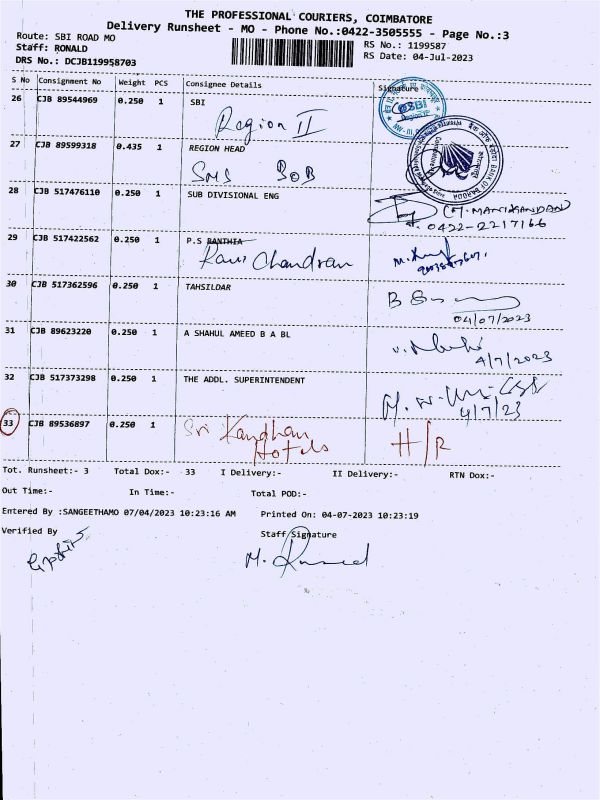 THE PROFESSIONAL COURIERS, COIMBATORE
Delivery Runsheet - MO - Phone No.:0422-3505555 - Page No.:3
Route: SBI ROAD MO
Staff: RONALD
DRS No.: DCJB119958703
RS No.: 1199587
RS Date: 04-Jul-2023
S No Consignment No Weight PCS Consignee Details Signature
26 CJB 89544969 0.250 1 SBI
Region II
SBI
27 CJB 89599318 0.435 1 REGION HEAD
SMS BOB
BANK OF BARODA
28 CJB 517476110 0.250 1 SUB DIVISIONAL ENG
(M. MANIKANDAN)
0422-2217166
29 CJB 517422562 0.250 1 P.S RANTHIA
Ravi Chandran
30 CJB 517362596 0.250 1 TAHSILDAR
04/07/2023
31 CJB 89623220 0.250 1 A SHAHUL AMEED B A BL
4/7/2023
32 CJB 517373298 0.250 1 THE ADDL. SUPERINTENDENT
4/7/23
33 CJB 89536897 0.250 1 Sri Kandhan
Hotels
H/R
Tot. Runsheet:- 3 Total Dox:- 33 I Delivery:- II Delivery:- RTN Dox:-
Out Time:- In Time:- Total POD:-
Entered By :SANGEETHAMO 07/04/2023 10:23:16 AM Printed On: 04-07-2023 10:23:19
Verified By Staff Signature